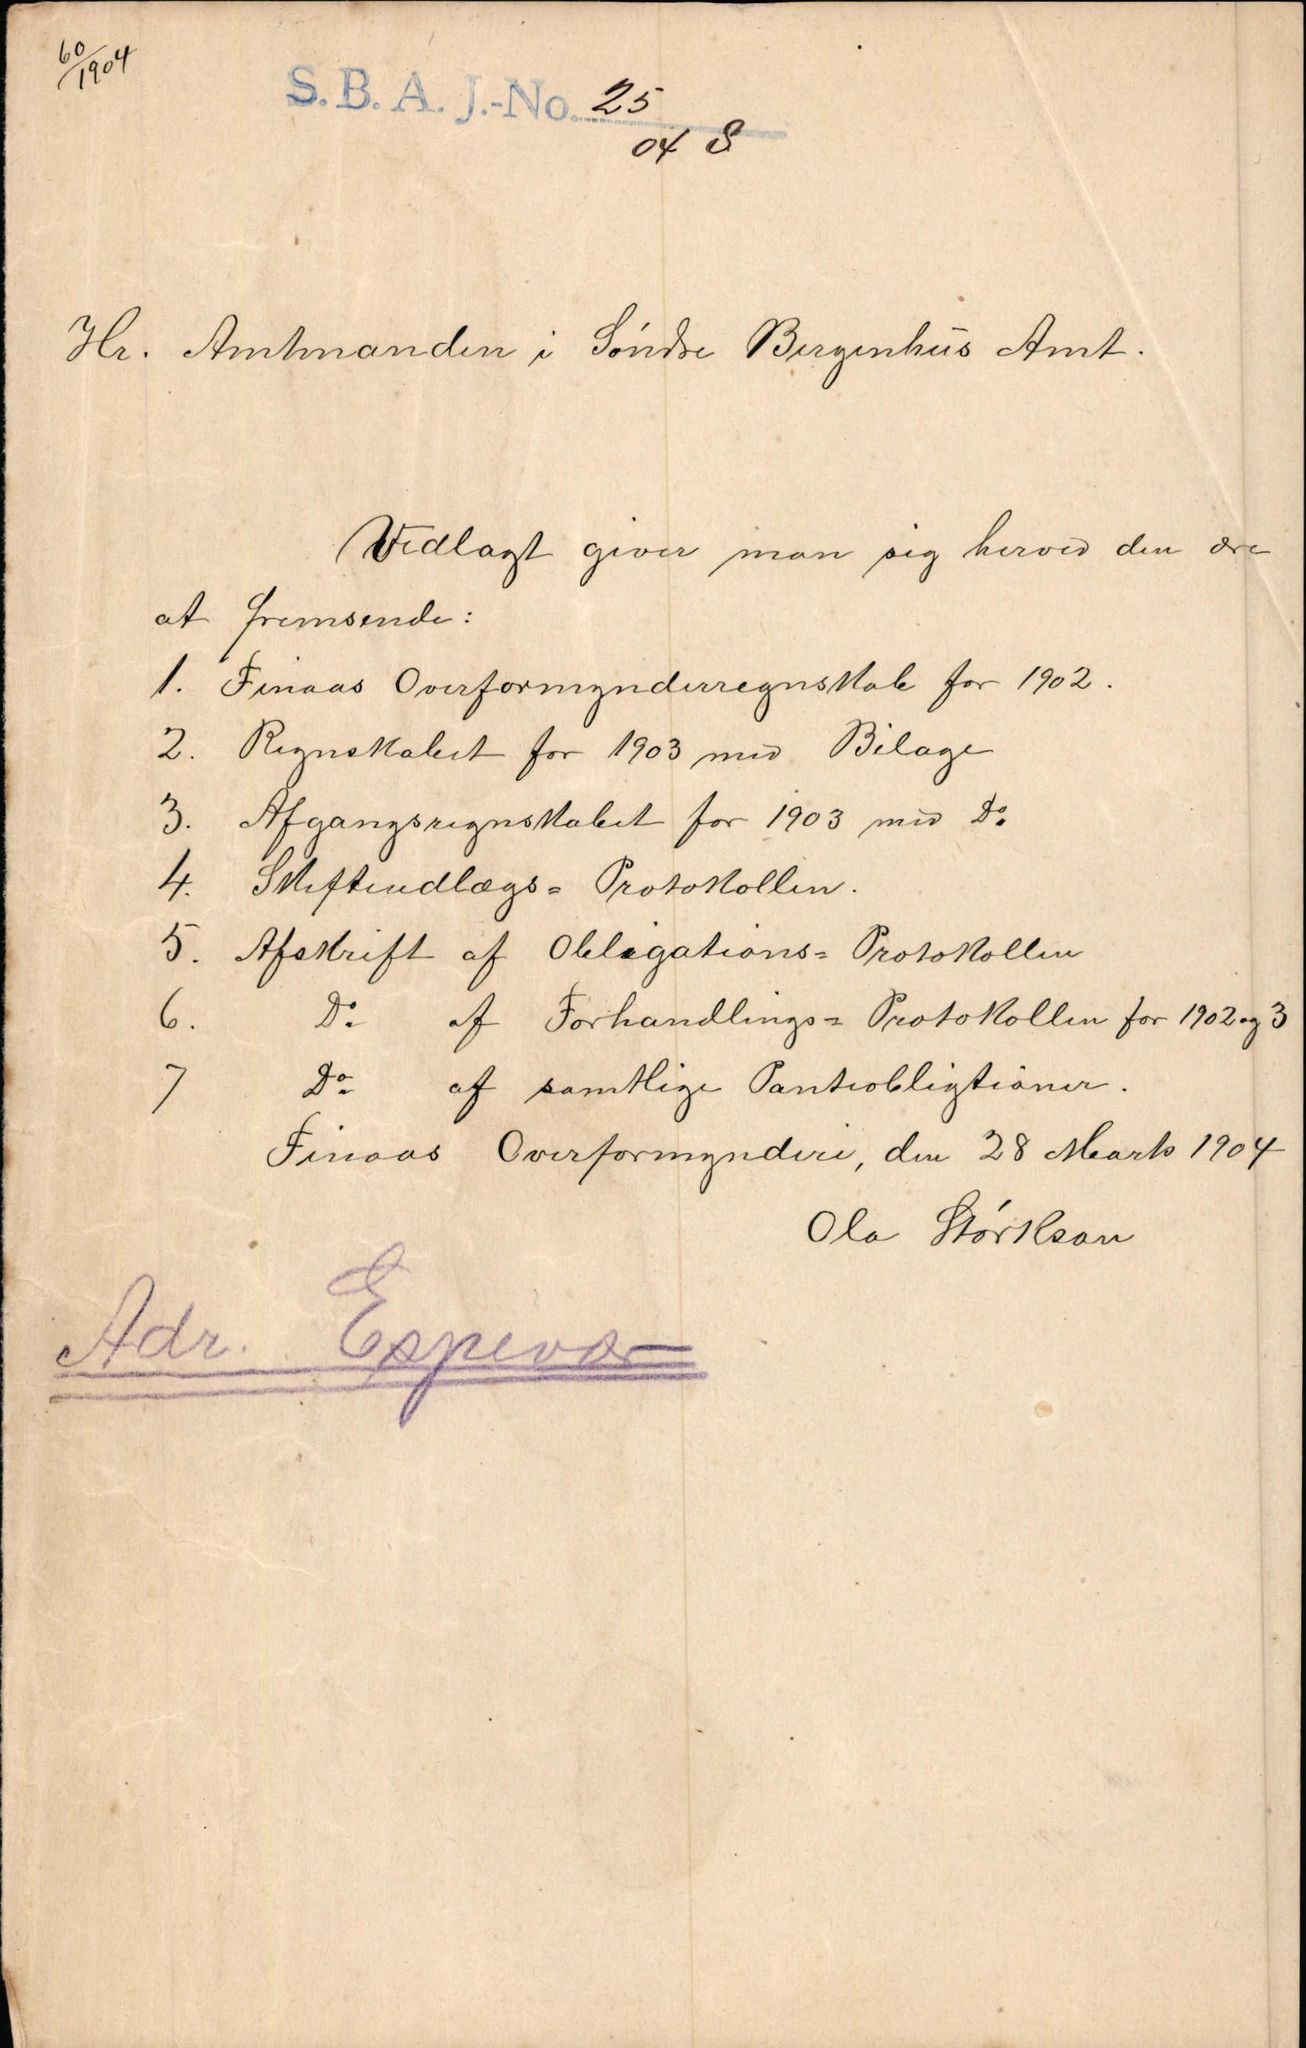 60/1904
S. B. A. J.-No. 25
04 S
Hr. Amtmanden i Søndre Bergenhus Amt.
Vedlagt giver man sig herved den ære
at fremsende:
1. Finaas Overformynderregnskab for 1902.
2. Regnskabet for 1903 med Bilage
3. Afgangsregnskabet for 1903 med Do
4. Skifteudlægs= Protokollen.
5. Afskrift af Obligations= Protokollen
6. Do af Forhandlings= Protokollen for 1902 og 3
7 Do af samtlige Panteobligtioner.
Finaas Overformynderi, den 28 Marts 1904
Ola Størkson
Adr. Espevær